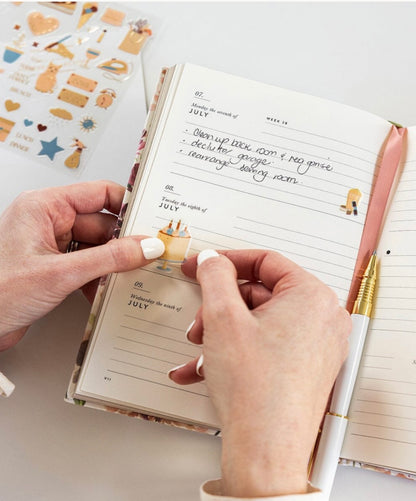 07.
Monday the seventh of
JULY
WEEK 28
• Clean up back room & reorganise
• declutter garage.
• rearrange sewing room
08.
Tuesday the eighth of
JULY
09.
Wednesday the ninth of
JULY
LUNCH
DINNER
LUNCH
DINNER
VII